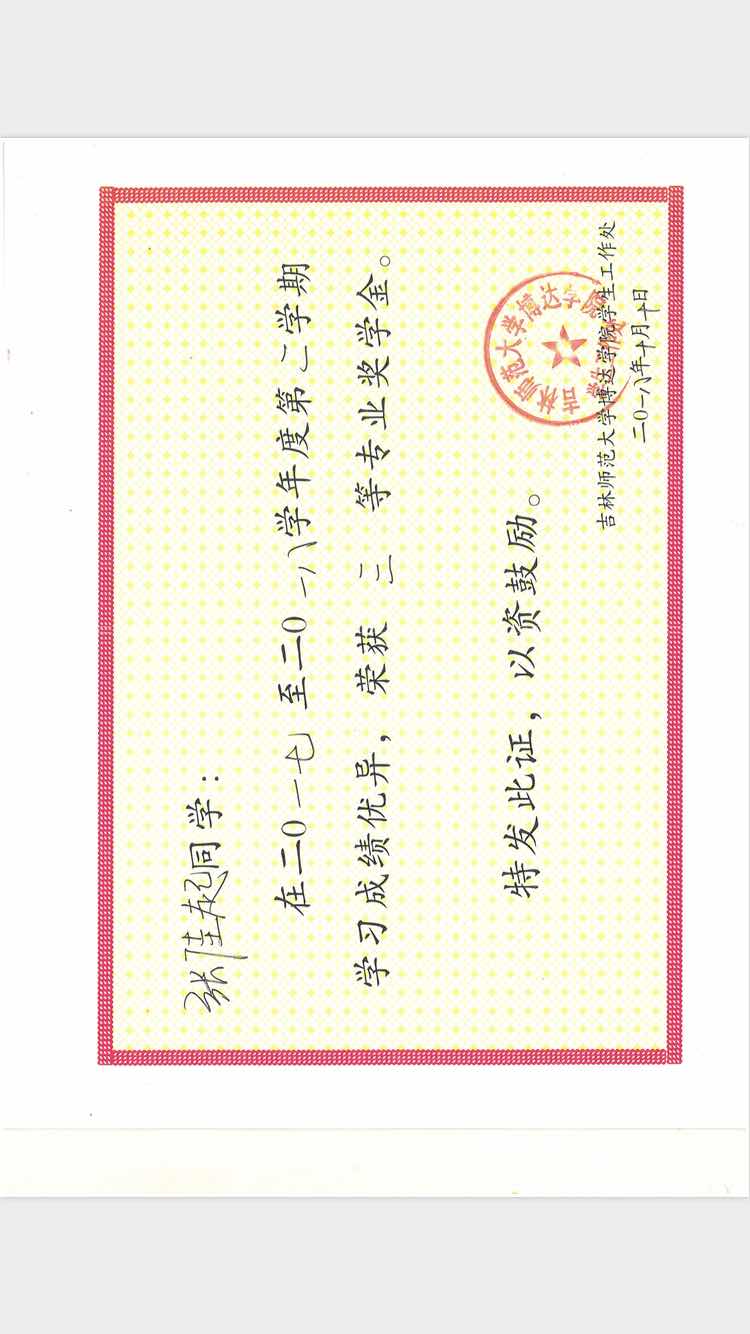 张佳起同学：
在二〇一七至二〇一八学年度第二学期
学习成绩优异，荣获 三 等专业奖学金。
特发此证，以资鼓励。
吉林师范大学博达学院
吉林师范大学博达学院学生工作处
二〇一八年十月十日